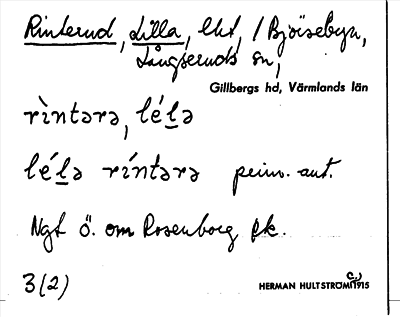 Rinterud, Lilla, lht, / Björsebyn,
Långseruds sn,
Gillbergs hd, Värmlands län
rìntərə, lé́l̲ə
lé́l̲ə ríntərə peinv. aut.
Ngt ö. om Rosenborg pk.
3(2)
HERMAN HULTSTRÖM 1915